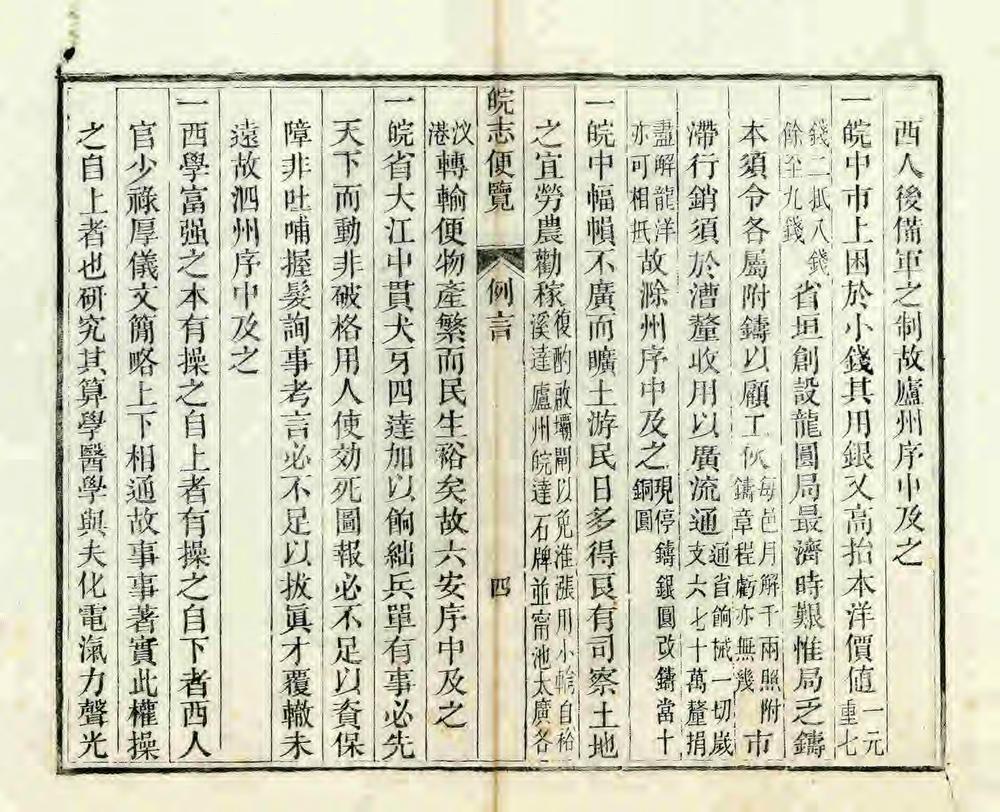 西人後備軍之制故廬州序中及之
一皖中市上困於小錢其用銀又高抬本洋價值一元重七
錢二抵八錢餘至九錢省垣創設龍圓局最濟時艱惟局乏鑄
本須令各屬附鑄以顧工伙每邑月解千兩照附鑄章程虧亦無幾市
滯行銷須於漕釐收用以廣流通通省餉械一切歲支六七十萬釐捐
盡解龍洋亦可相抵故滁州序中及之現停鑄銀圓改鑄當十銅圓
一皖中幅幀不廣而曠土游民日多得良有司察土地
之宜勞農勸稼復酌啟壩閘以免淮漲用小輪自裕溪達廬州皖達石牌並甯池太廣各
皖志便覽 例言 四
汊港轉輸便物產繁而民生裕矣故六安序中及之
一皖省大江中貫犬牙四達加以餉絀兵單有事必先
天下而動非破格用人使効死圖報必不足以資保
障非吐哺握髮詢事考言必不足以拔眞才覆轍未
遠故泗州序中及之
一西學富强之本有操之自上者有操之自下者西人
官少祿厚儀文簡略上下相通故事事著實此權操
之自上者也研究其算學醫學與夫化電氣力聲光